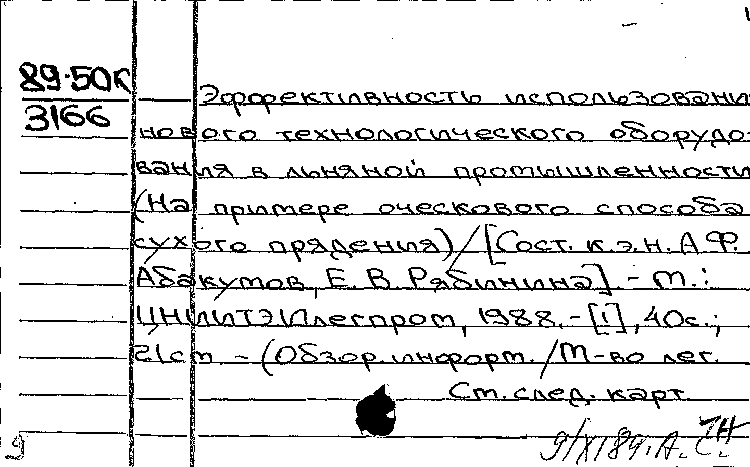 89-50к
3166
Эффективность использовани
нового технологического оборудо-
вания в льняной промышленности
(На примере оческового способа
сухого прядения)/[Сост. к.э.н. А.Ф.
Абакумов, Е.В. Рябинина]. - М.:
ЦНИИТЭИлегпром, 1988. - [1], 40с.;
21см. - (Обзор. информ./М-во лег.
См. след. карт.
9